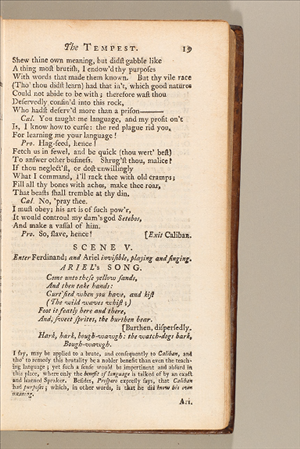 The TEMPEST. 19
Shew thine own meaning, but didſt gabble like
A thing moſt brutiſh, I endow'd thy purpoſes
With words that made them known. But thy vile race
(Tho' thou didſt learn) had that in't, which good natures
Could not abide to be with; therefore waſt thou
Deſervedly confin'd into this rock,
Who hadſt deſerv'd more than a priſon——
Cal. You taught me language, and my profit on't
Is, I know how to curſe: the red plague rid you,
For learning me your language!
Pro. Hag-ſeed, hence!
Fetch us in fewel, and be quick (thou wert' beſt)
To anſwer other buſineſs. Shrug'ſt thou, malice?
If thou neglect'ſt, or doſt unwillingly
What I command, I'll rack thee with old cramps;
Fill all thy bones with aches, make thee roar,
That beaſts ſhall tremble at thy din.
Cal. No, 'pray thee.
I muſt obey; his art is of ſuch pow'r,
It would controul my dam's god Setebos,
And make a vaſſal of him.
Pro. So, ſlave, hence! [Exit Caliban.
SCENE V.
Enter Ferdinand; and Ariel inviſible, playing and ſinging.
ARIEL's SONG.
Come unto theſe yellow ſands,
And then take hands:
Curt'ſied when you have, and kiſt
(The wild waves whiſt;)
Foot it featly here and there,
And, ſweet ſprites, the burthen bear.
[Burthen, diſperſedly.
Hark, hark, bough-wawgh: the watch-dogs bark,
Bough-wawgh.
I ſay, may be applied to a brute, and conſequently to Caliban, and
tho' to remedy this brutality be a nobler benefit than even the teach-
ing language; yet ſuch a ſenſe would be impertinent and abſurd in
this place, where only the benefit of language is talked of by an exact
and learned Speaker. Beſides, Proſpero expreſly ſays, that Caliban
had purpoſes; which, in other words, is that he did know his own
meaning.
Ari.